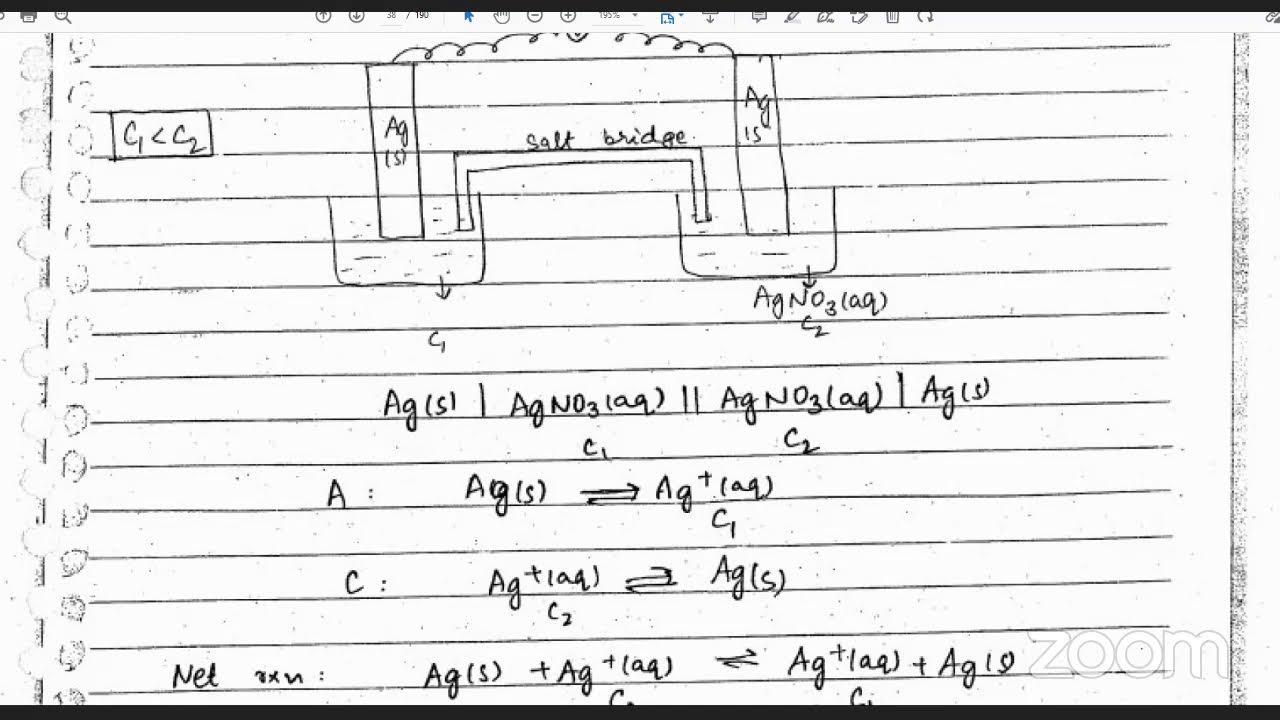 38 / 190
195%
C₁ < C₂
Ag
(s)
Salt bridge
Ag
(s
AgNO₃(aq)
C₂
C₁
Ag(s) | AgNO₃(aq) || AgNO₃(aq) | Ag(s)
C₁ C₂
A : Ag(s) ⇌ Ag⁺(aq)
C₁
C : Ag⁺(aq) ⇌ Ag(s)
C₂
Net rxn : Ag(s) + Ag⁺(aq) ⇌ Ag⁺(aq) + Ag(s)
C₂ C₁
zoom